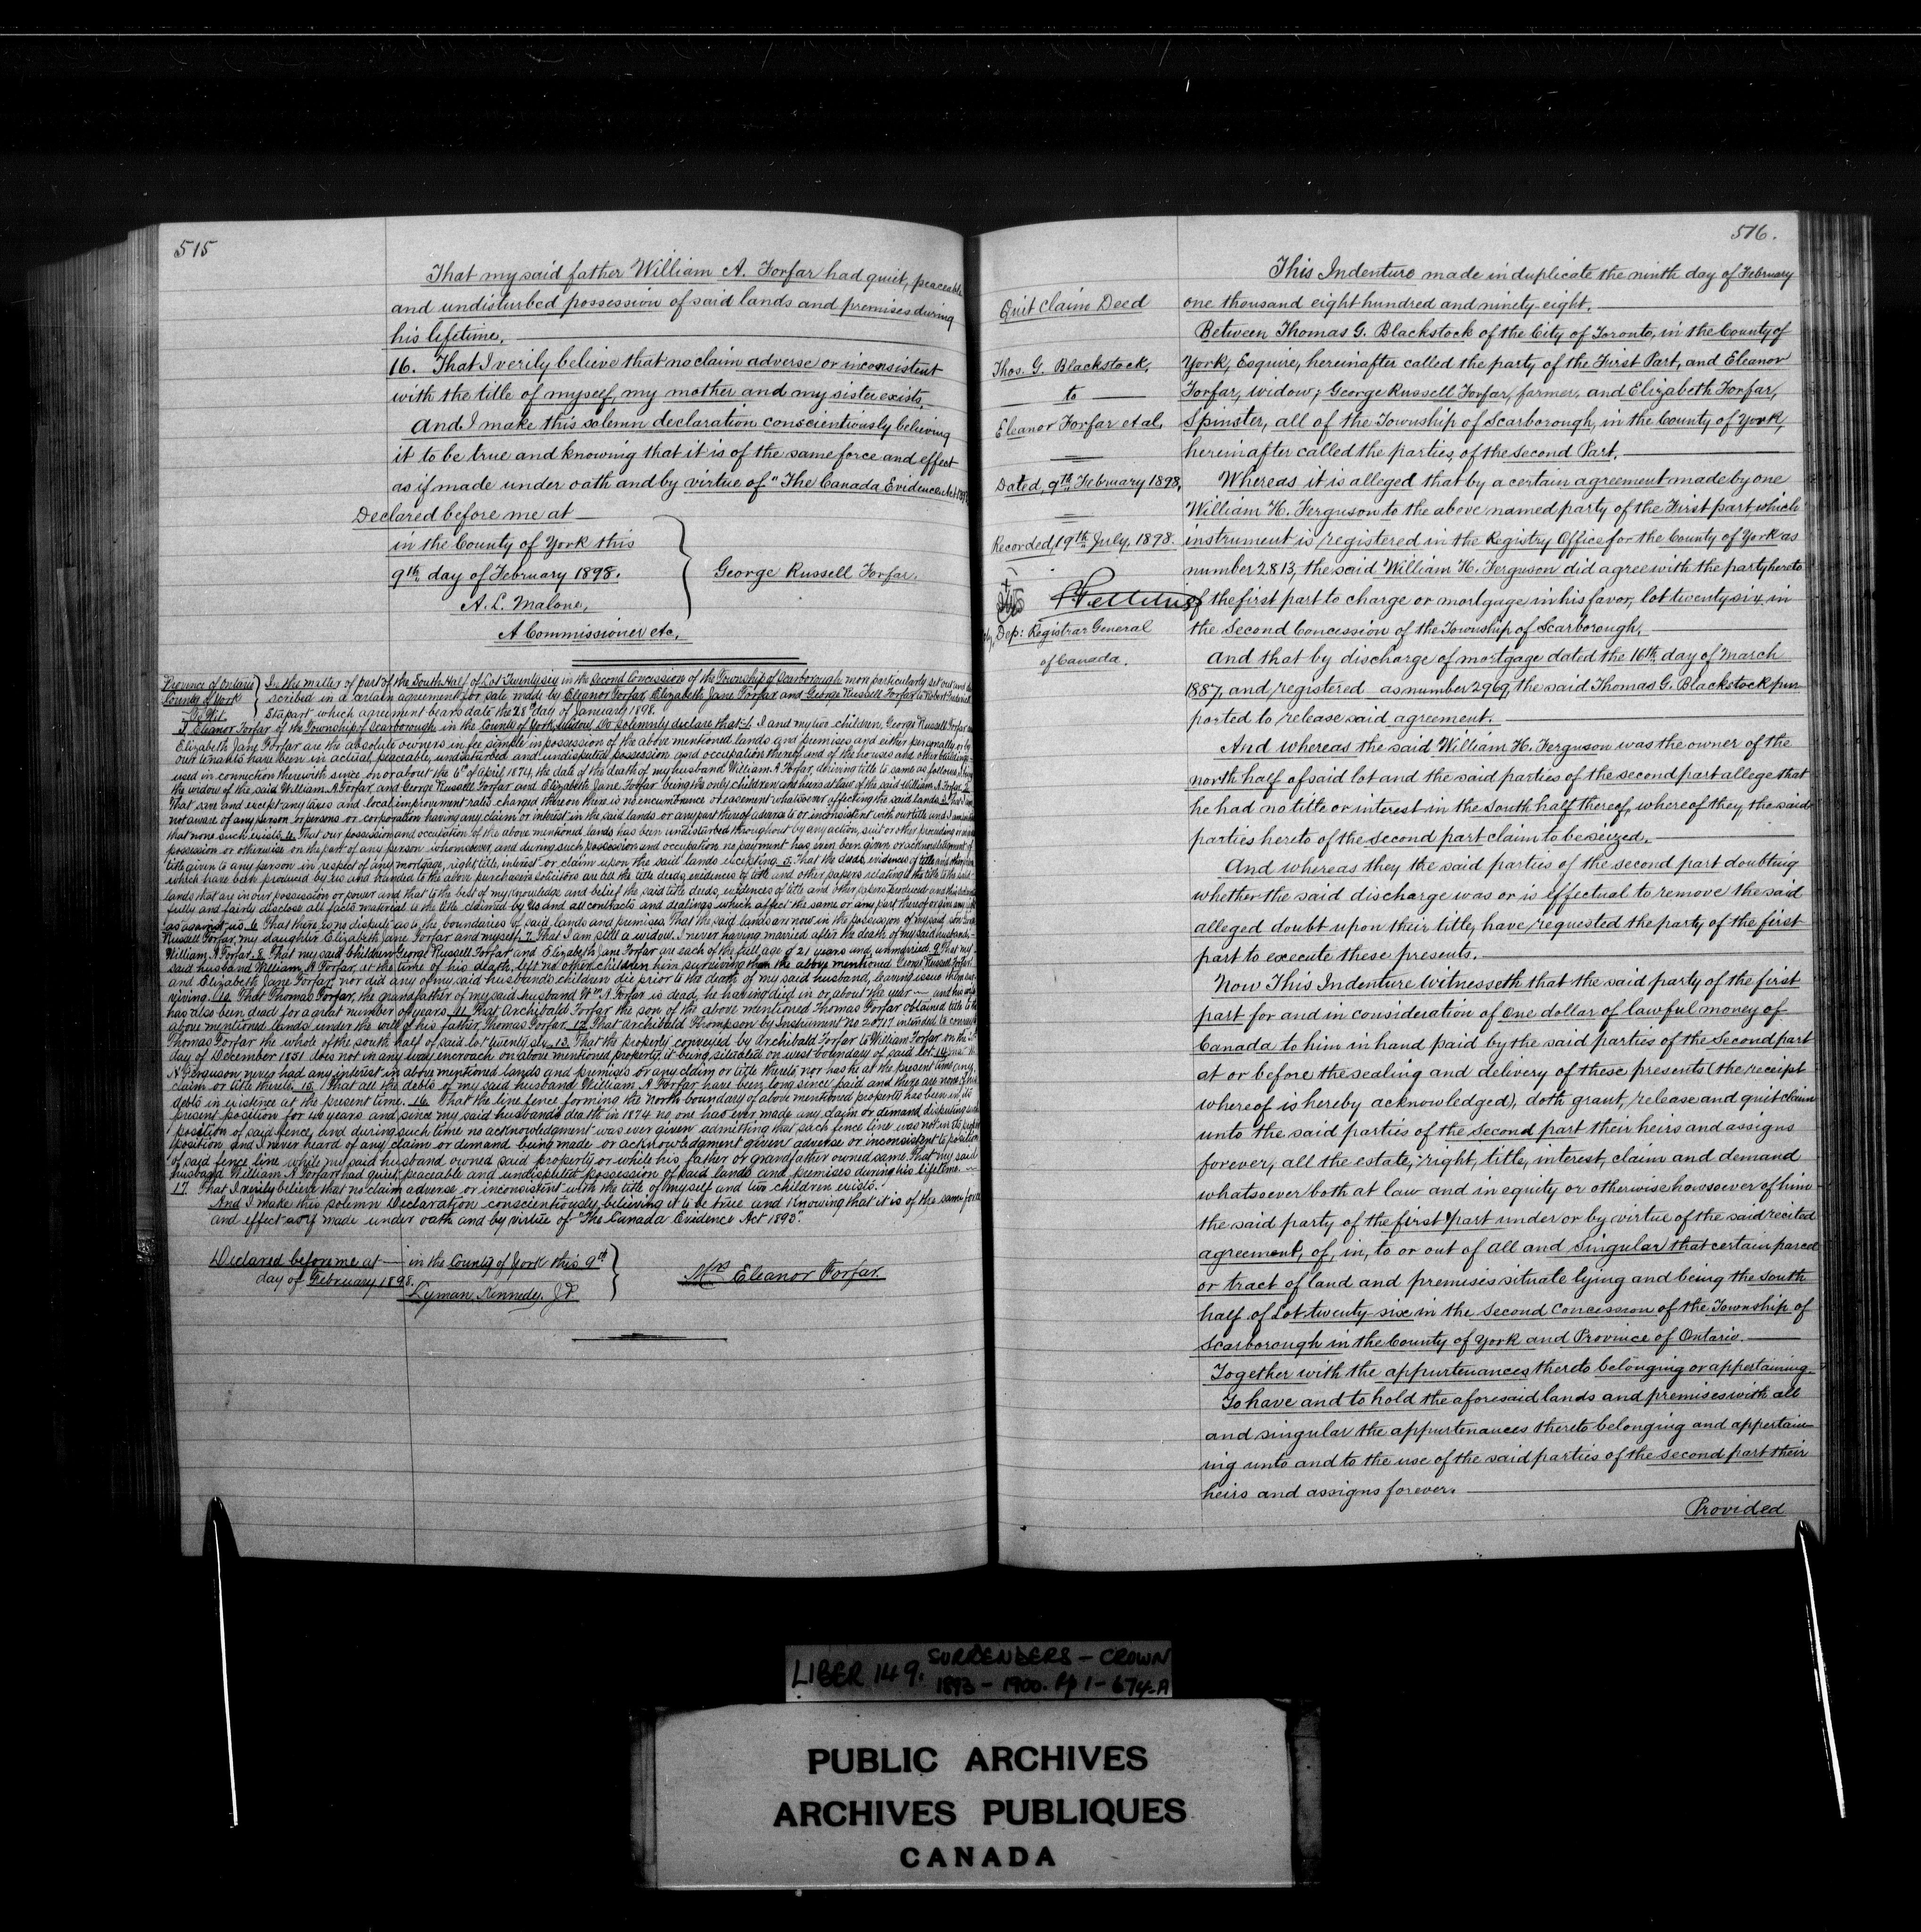 515
That my said father William A. Forfar had quiet, peaceable
and undisturbed possession of said lands and premises during
his lifetime.
16. That I verily believe that no claim adverse or inconsistent
with the title of myself, my mother and my sister exists.
And I make this solemn declaration conscientiously believing
it to be true and knowing that it is of the same force and effect
as if made under oath and by virtue of "The Canada Evidence Act 1893
Declared before me at
in the County of York this
9th day of February 1898.
A. L. Malone,
A Commissioner etc,
George Russell Forfar.
Province of Ontario
County of York
To Wit
In the matter of part of the South Half of Lot Twenty six in the Second Concession of the Township of Scarborough more particularly set out and de
scribed in a certain agreement for sale made by Eleanor Forfar, Elizabeth Jane Forfar and George Russell Forfar to Robert Frederick
Stapart which agreement bears date the 28th day of January 1898.
I, Eleanor Forfar of the Township of Scarborough in the County of York, widow, Do solemnly declare that:- 1. I and my two children, George Russell Forfar and
Elizabeth Jane Forfar are the absolute owners in fee simple in possession of the above mentioned lands and premises and either personally or by
our tenants have been in actual, peaceable, undisturbed and undisputed possession and occupation thereof and of the houses and other buildings
used in connection therewith since on or about the 6th of April 1874, the date of the death of my husband William A Forfar, deriving title to same as follows, I being
the widow of the said William A Forfar, and George Russell Forfar and Elizabeth Jane Forfar being the only children and heirs at law of the said William A Forfar. 2.
That save and except any taxes and local improvement rates charged thereon there is no encumbrance or easement whatsoever affecting the said lands. 3. That I am
not aware of any person or persons or corporation having any claim or interest in the said lands or any part thereof adverse to or inconsistent with our title and I
that none such exists. 4. That our possession and occupation of the above mentioned lands has been undisturbed throughout by any action, suit or other proceeding or adverse
possession or otherwise on the part of any person whomsoever and during such possession and occupation no payment has ever been given or acknowledgment of
title given to any person in respect of any mortgage, right title, interest or claim upon the said lands excepting 5. That the deeds, evidences of title and other papers
which have been produced by us and handed to the above purchasers solicitors are all the title deeds, evidences of title and other papers relating to the title to the said
lands that are in our possession or power and that to the best of my knowledge and belief the said title deeds, evidences of title and other papers produced and this declaration
fully and fairly disclose all facts material to the title claimed by us and all contracts and dealings which affect the same or any part thereof or give any right
as against us. 6. That there is no dispute as to the boundaries of said lands and premises. That the said lands are now in the possession of my said son George
Russell Forfar, my daughter Elizabeth Jane Forfar and myself. 7. That I am still a widow, I never having married after the death of my said husband
William A Forfar. 8. That my said Children George Russell Forfar and Elizabeth Jane Forfar are each of the full age of 21 years and unmarried. 9. That my
said husband William A Forfar, at the time of his death, left no other children him surviving than the above mentioned George Russell Forfar
and Elizabeth Jane Forfar, nor did any of my said husbands children die prior to the death of my said husband, leaving issue them sur-
viving. 10. That Thomas Forfar, the grandfather of my said husband Wm. A Forfar is dead, he having died in or about the year — and his wife
has also been dead for a great number of years. 11. That Archibald Forfar the son of the above mentioned Thomas Forfar obtained title to the
above mentioned lands under the will of his father, Thomas Forfar. 12. That Archibald Thompson by Instrument No 20717 intended to convey to
Thomas Forfar the whole of the south half of said lot twenty six. 13. That the property conveyed by Archibald Forfar to William Forfar on the
day of December 1851 does not in any way encroach on above mentioned property, it being situated on west boundary of said lot. 14.
A Ferguson never had any interest in above mentioned lands and premises or any claim or title thereto nor has he at the present time any
claim or title thereto. 15. That all the debts of my said husband William A Forfar have been long since paid and there are none of his
debts in existence at the present time. 16. That the line fence forming the north boundary of above mentioned property has been in its
present position for 40 years and since my said husbands death in 1874 no one has ever made any claim or demand disputing such
position of said fence, and during such time no acknowledgment was ever given admitting that such fence line was not in its proper
position and I never heard of any claim or demand being made or acknowledgment given adverse or inconsistent to position
of said fence line while my said husband owned said property or while his father or grandfather owned same. That my said
husband William A Forfar had quiet, peaceable and undisputed possession of said lands and premises during his lifetime.
17. That I verily believe that no claim adverse or inconsistent with the title of myself and two children exists.
And I make this solemn Declaration conscientiously believing it to be true and knowing that it is of the same force
and effect as if made under oath and by virtue of "The Canada Evidence Act 1893".
Declared before me at — in the County of York this 9th
day of February 1898.
Lyman Kennedy, J.P.
Mrs Eleanor Forfar.
516.
Quit Claim Deed
Thos. G. Blackstock,
to
Eleanor Forfar et al,
Dated, 9th February 1898,
Recorded, 19th July, 1898.
Dep: Registrar General
of Canada.
This Indenture made in duplicate the ninth day of February
one thousand eight hundred and ninety-eight.
Between Thomas G. Blackstock of the City of Toronto, in the County of
York, Esquire, hereinafter called the party of the First Part, and Eleanor
Forfar, widow; George Russell Forfar, farmer, and Elizabeth Forfar,
Spinster, all of the Township of Scarborough, in the County of York,
hereinafter called the parties of the second Part.
Whereas it is alleged that by a certain agreement made by one
William H. Ferguson to the above named party of the First part which
instrument is registered in the Registry Office for the County of York as
number 2813, the said William H. Ferguson did agree with the party hereto
of the first part to charge or mortgage in his favor, lot twenty six, in
the Second Concession of the Township of Scarborough,
And that by discharge of mortgage dated the 16th day of March
1887, and registered as number 2969, the said Thomas G. Blackstock pur
ported to release said agreement.
And whereas the said William H. Ferguson was the owner of the
north half of said lot and the said parties of the second part allege that
he had no title or interest in the South half thereof, whereof they, the said
parties hereto of the second part claim to be seized.
And whereas they the said parties of the second part doubting
whether the said discharge was or is effectual to remove the said
alleged doubt upon their title, have requested the party of the first
part to execute these presents.
Now This Indenture Witnesseth that the said party of the first
part for and in consideration of One dollar of lawful money of
Canada to him in hand paid by the said parties of the Second part
at or before the sealing and delivery of these presents (the receipt
whereof is hereby acknowledged), doth grant, release and quit claim
unto the said parties of the second part their heirs and assigns
forever, all the estate, right, title, interest, claim and demand
whatsoever both at law and in equity or otherwise howsoever of him
the said party of the first part under or by virtue of the said recited
agreement, of, in, to or out of all and Singular that certain parcel
or tract of land and premises situate lying and being the South
half of Lot twenty six in the Second Concession of the Township of
Scarborough in the County of York and Province of Ontario.
Together with the appurtenances thereto belonging or appertaining.
To have and to hold the aforesaid lands and premises with all
and singular the appurtenances thereto belonging and appertain-
ing unto and to the use of the said parties of the second part their
heirs and assigns forever.
Provided
LIBER 149. SURRENDERS - CROWN
1893 - 1900. Pp 1 - 674-A
PUBLIC ARCHIVES
ARCHIVES PUBLIQUES
CANADA